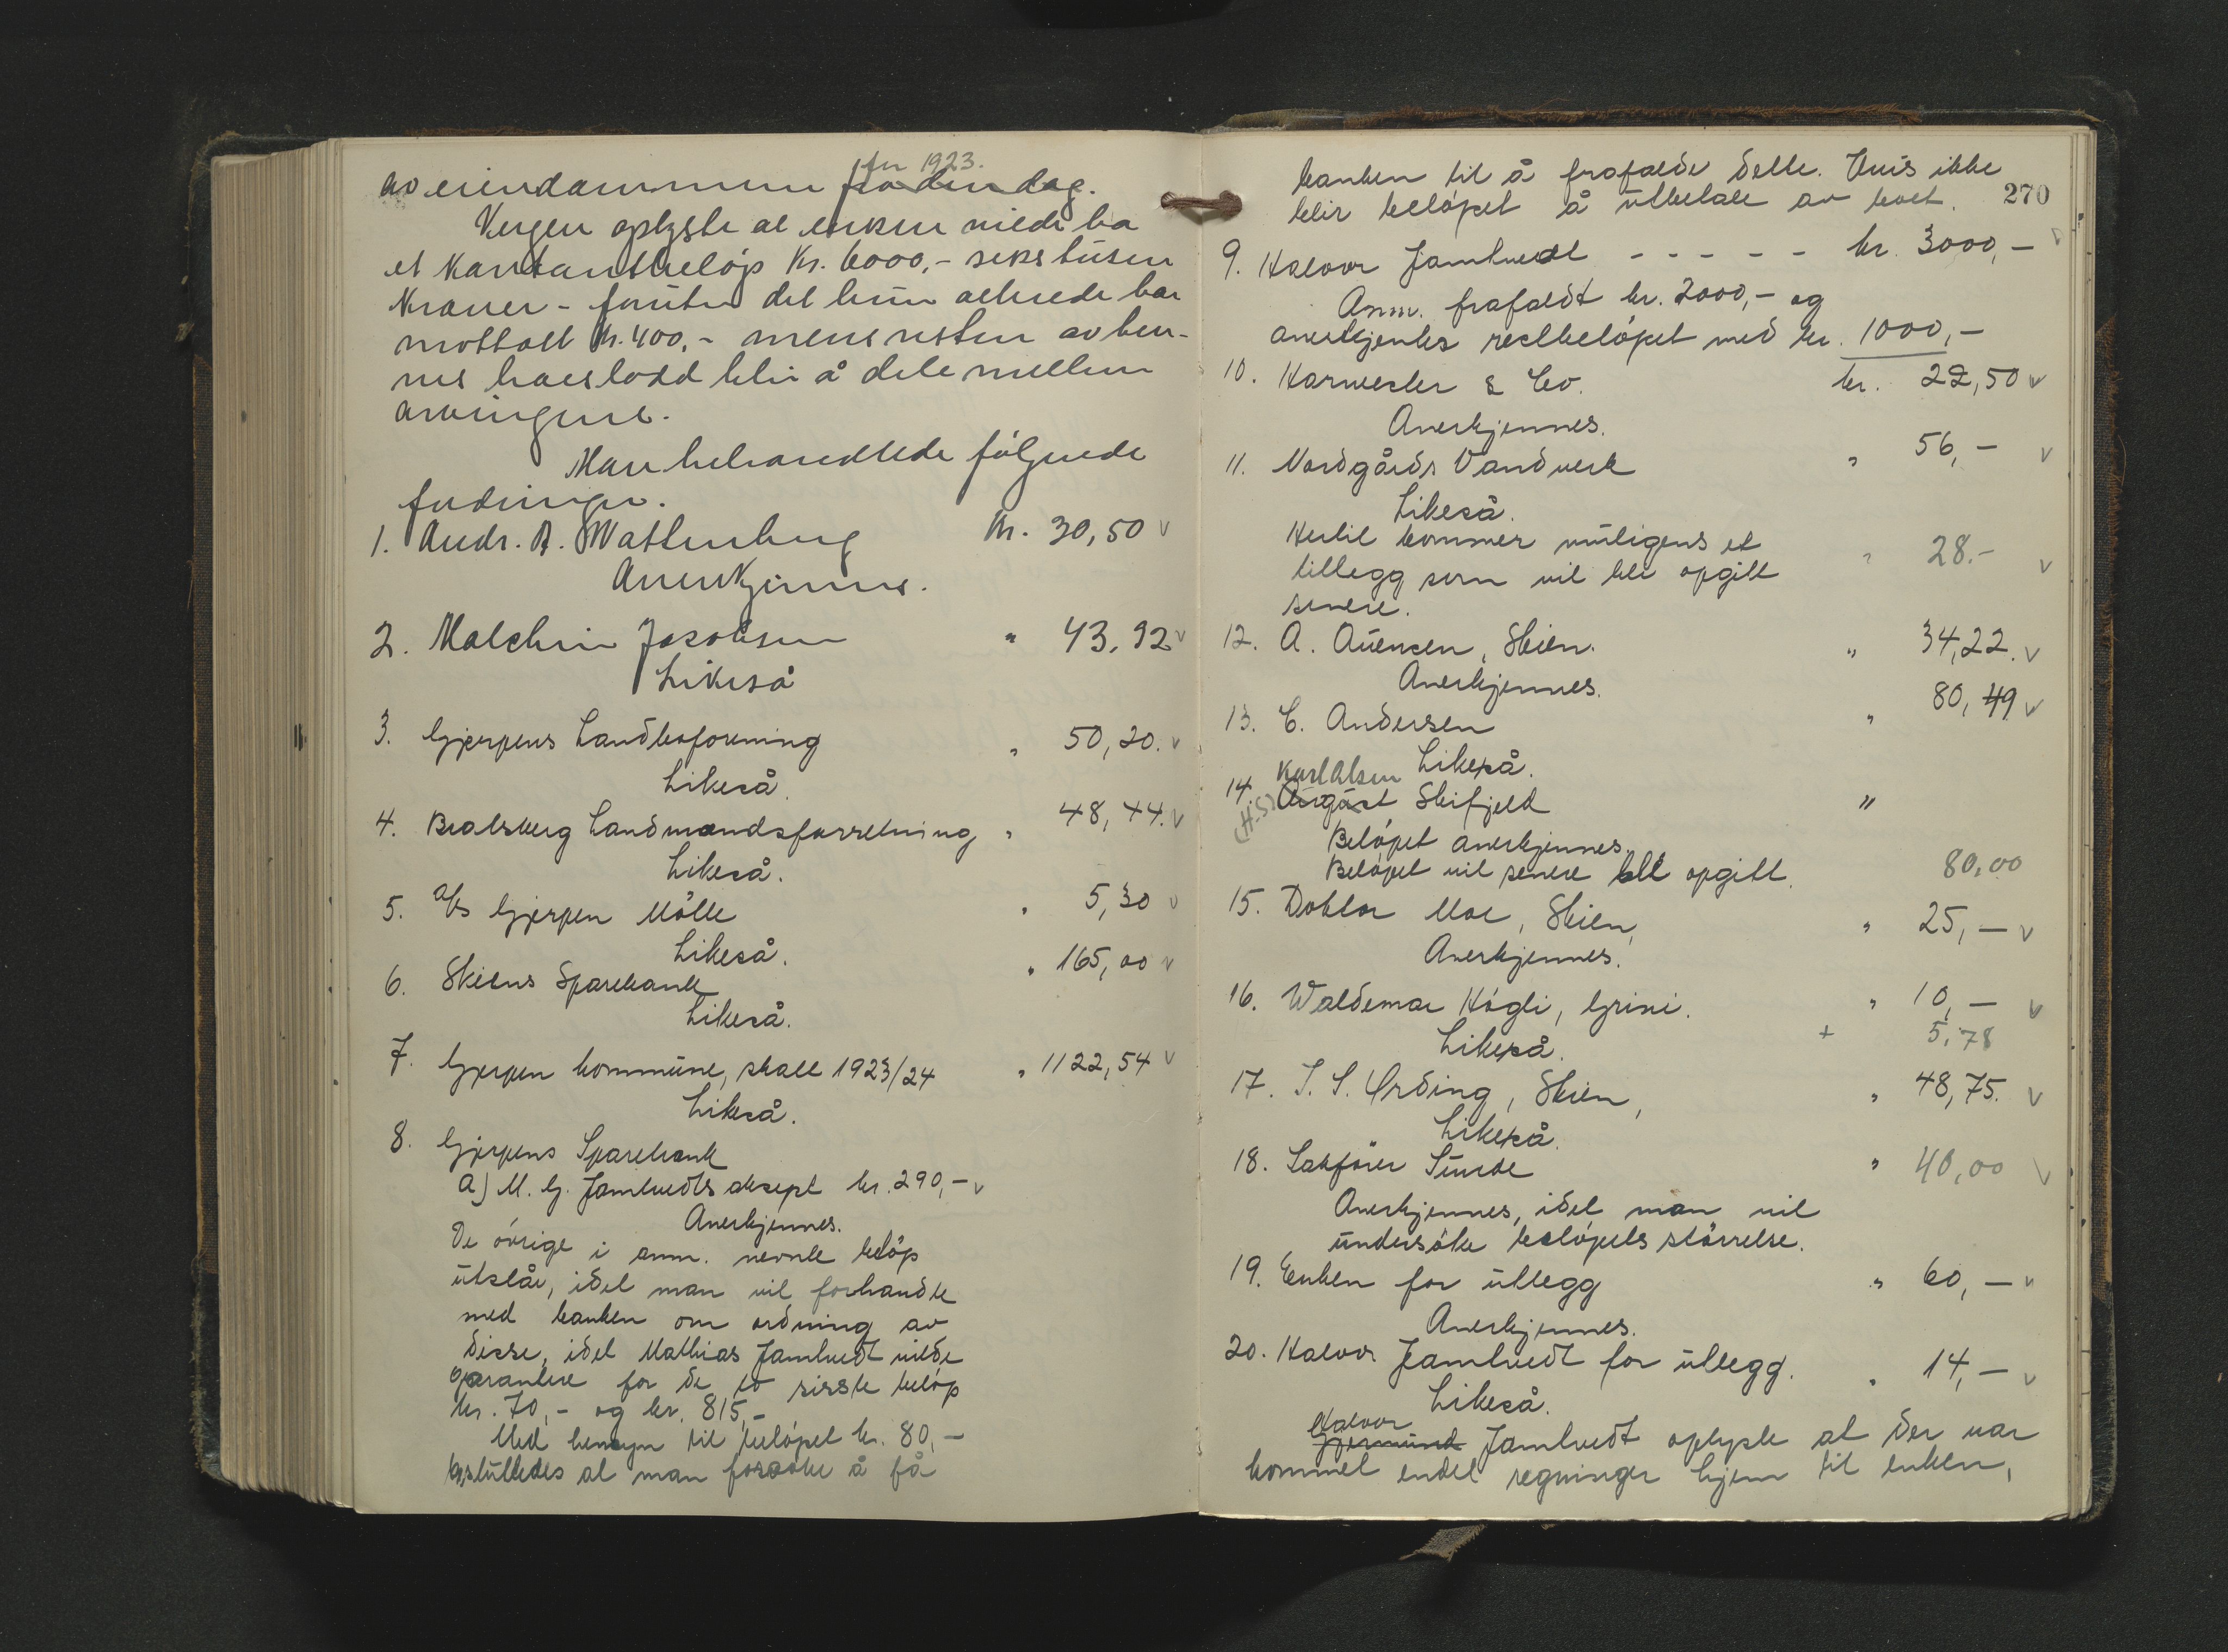 for 1923.
av eiendommen fra den dag.
Vergen oplyste at enken vilde ha
et kontantbeløp kr. 6000,- seks tusen
kroner - foruten det hun allerede har
mottatt kr. 400,- mens resten av hen-
nes boeslodd blir å dele mellem
arvingene.
Man behandlede følgende
fordringer.
1. Andr. A. Wattenberg kr. 30,50 v
Anerkjennes.
2. Jacobsen " 43,92 v
Likeså
3. Gjerpens Landboforening " 50,20. v
Likeså.
4. Bratsberg Landmandsforretning " 48,44. v
Likeså.
5. A/s Gjerpen Mölle " 5,30 v
Likeså.
6. Skiens Sparebank " 165,00 v
Likeså.
7. Gjerpen kommune, skatt 1923/24 " 1122,54 v
Likeså.
8. Gjerpens Sparebank
a) M. G. Jamtvedts aksept kr. 290,- v
Anerkjennes.
De övrige i anm. nevnte belöp
utslår, idet man vil forhandle
med banken om ordning av
disse, idet Mathias Jamtvedt vilde
garantere for de to sisste belöp
kr. 70,- og kr. 815,-
Med hensyn til belöpet kr. 80,-
besluttedes at man forsöke å få
270
banken til å frafalde dette. Hvis ikke
blir belöpet å utbetale av boet.
9. Halvor Jamtvedt - - - - - kr. 3000,- v
Anm. frafaldt kr. 2000,- og
anerkjentes restbelöpet med kr. 1000,-
10. Harwester & Co. kr. 22,50 v
Anerkjennes.
11. Nordgårds Vandverk " 56,- v
Likeså.
Hertil kommer muligens et " 28.- v
tillegg som vil bli opgitt
senere.
12. A. Auensen, Skien. " 34,22. v
Anerkjennes.
13. C. Andersen " 80,49 v
Likeså.
Karl Olsen
14. August Skifjeld "
(H.S)
Belöpet anerkjennes.
Belöpet vil senere bli opgitt. 80,00
15. Doktor Moe, Skien, " 25,- v
Anerkjennes.
16. Waldemar Högli, Grini. " 10,- v
Likeså. + 5,78
17. I. S. Örding, Skien, " 48,75. v
Likeså.
18. Sakförer Sunde " 40,00 v
Anerkjennes, idet man vil
undersöke beslöpets störrelse.
19. Enken for utlegg " 60,- v
Anerkjennes.
20. Halvor Jamtvedt for utlegg. " 14,- v
Likeså.
Halvor
Gjermund Jamtvedt oplyste at der var
kommet endel regninger hjem til enken,